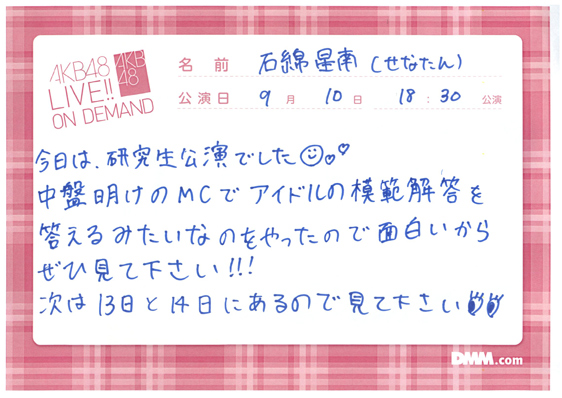 AKB48
LIVE!!
ON DEMAND
AKB
48
名前 石綿星南(せなたん)
公演日 9月 10日 18:30 公演
今日は、研究生公演でした
中盤明けのMCでアイドルの模範解答を
答えるみたいなのをやったので面白いから
ぜひ見て下さい!!!
次は13日と14日にあるので見て下さい
DMM.com